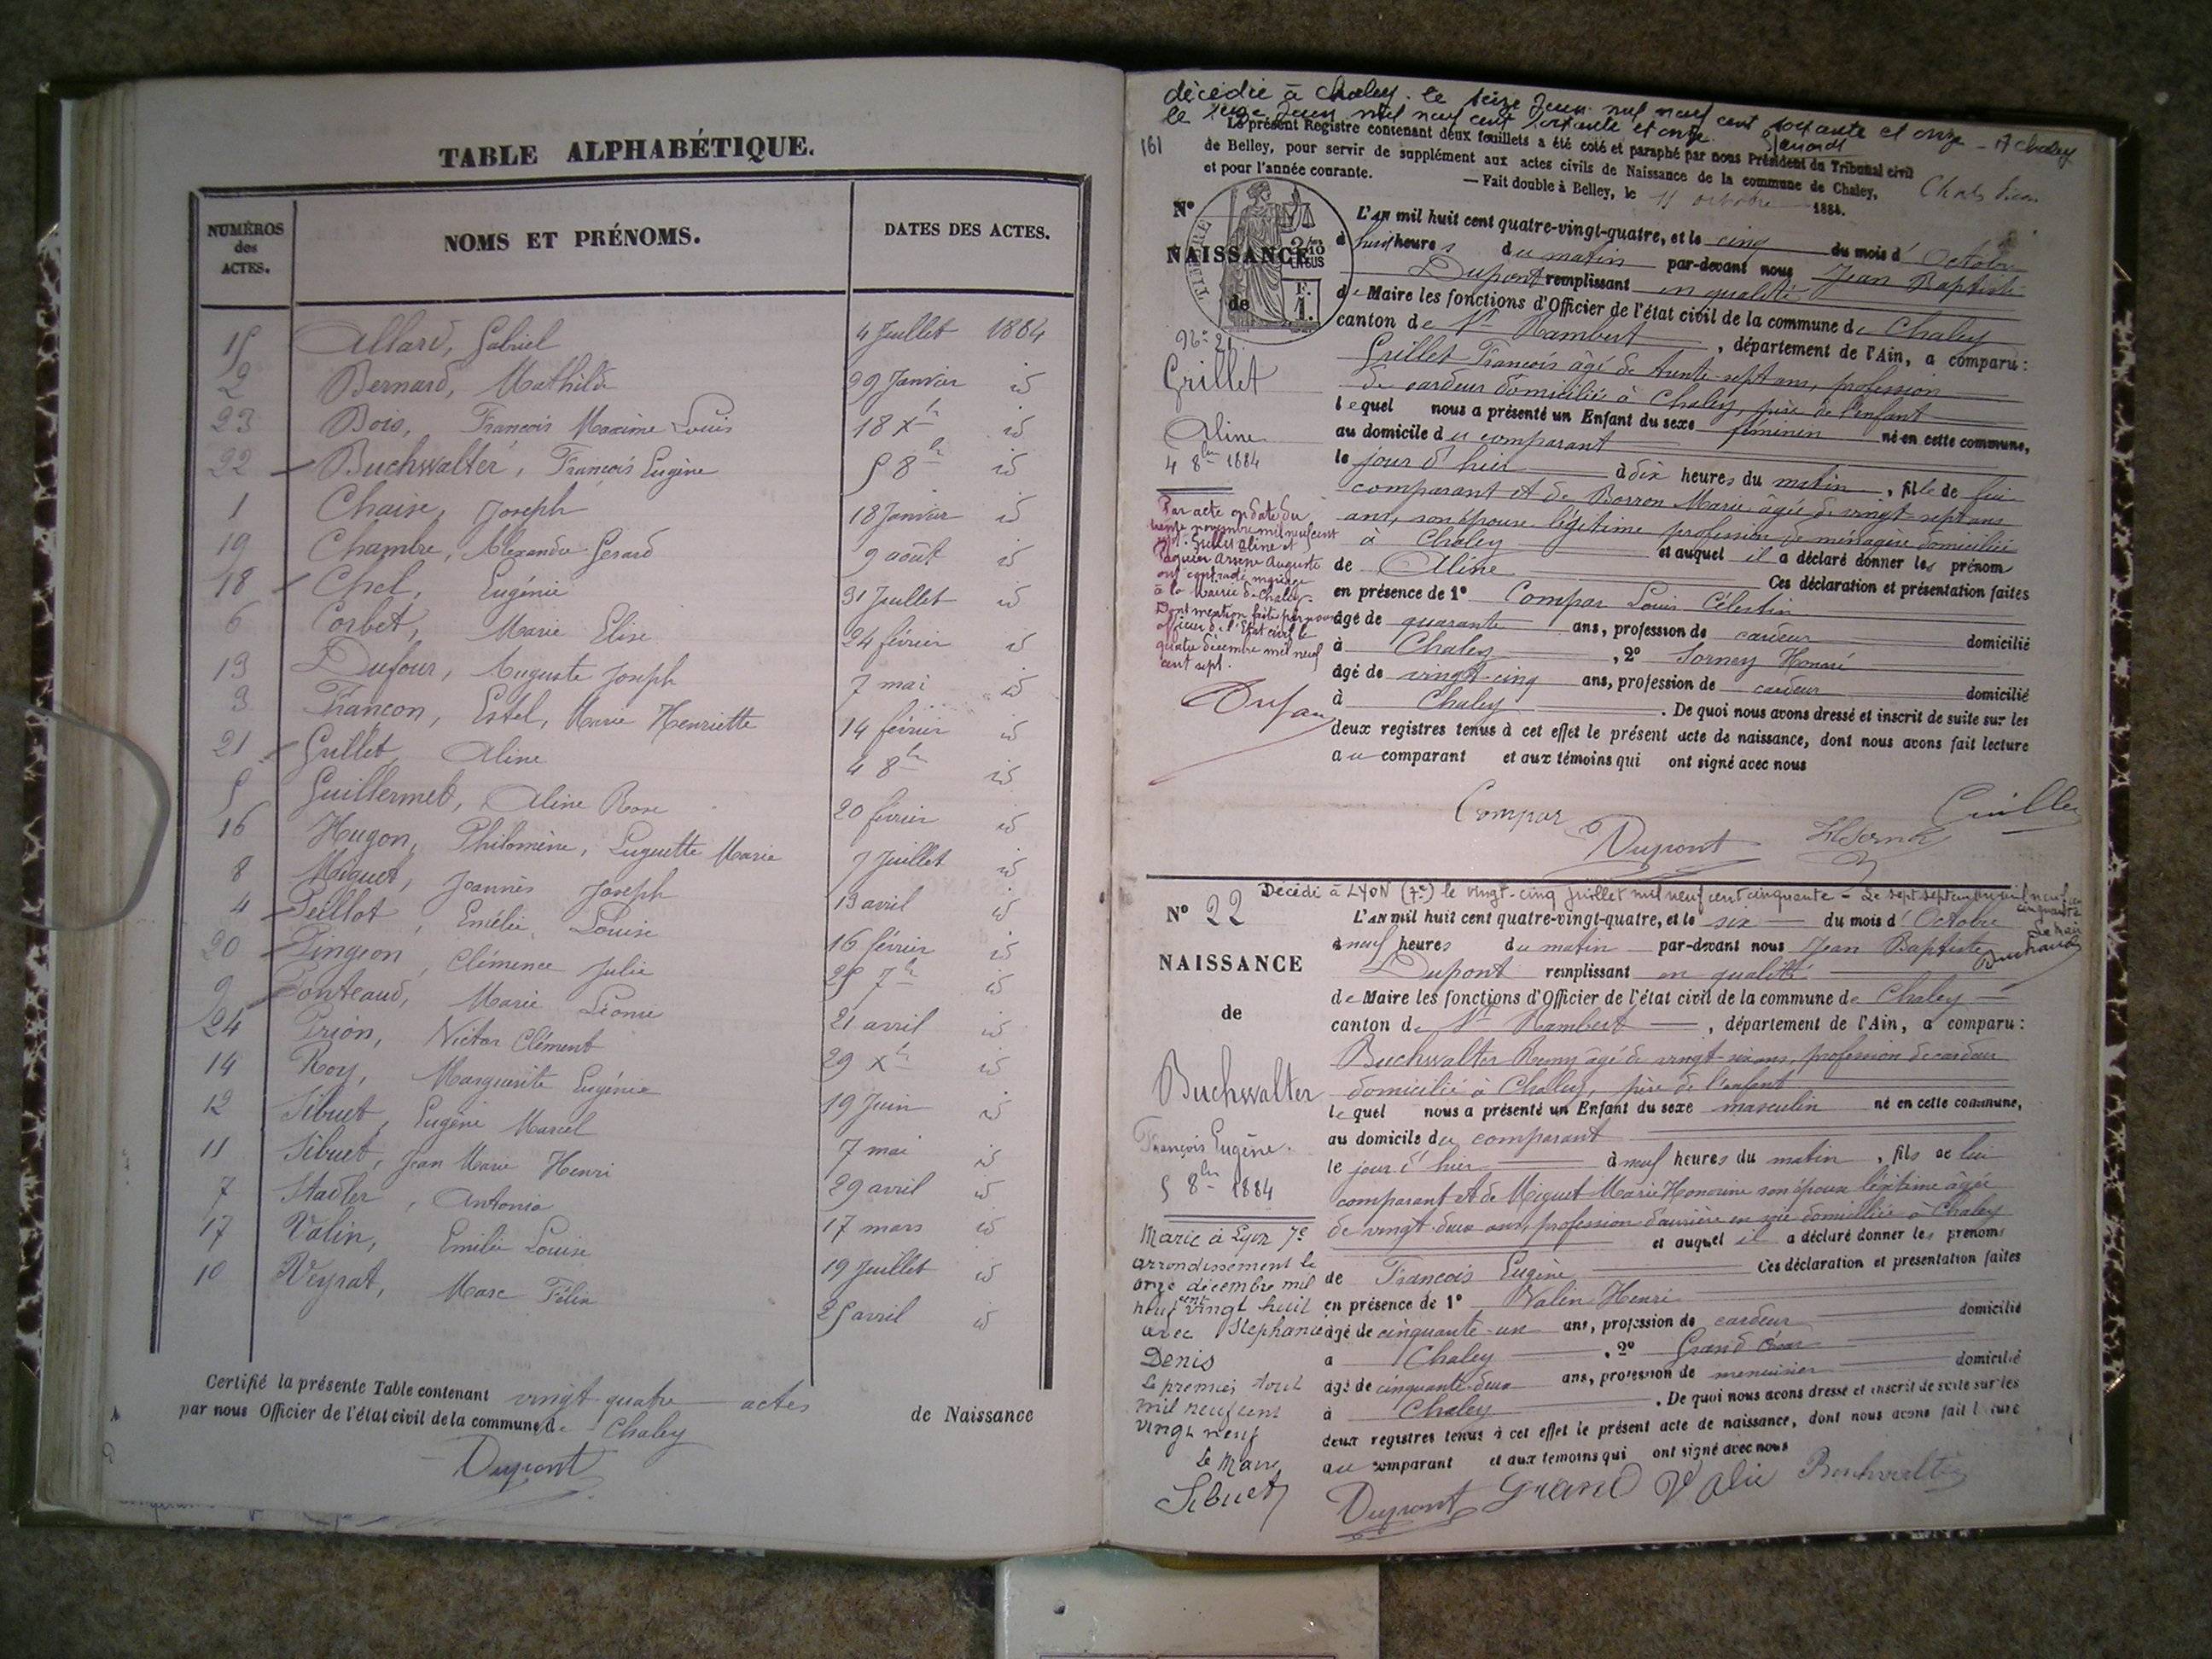 TABLE ALPHABÉTIQUE.
NUMÉROS des ACTES. NOMS ET PRÉNOMS. DATES DES ACTES.
15 Allard, Gabriel 4 Juillet 1884
2 Bernard, Mathilde 29 Janvier id
23 Bois, François Maxime Louis 18 Xbre id
22 Buchwalter, François Eugène 5 8bre id
1 Chaise, Joseph 18 Janvier id
19 Chambre, Alexandre Gerard 9 août id
18 Chel, Eugénie 31 Juillet id
6 Corbet, Marie Elise 24 février id
13 Dufour, Auguste Joseph 7 mai id
3 Francon, Estel, Marie Henriette 14 février id
21 Grillet, Aline 4 8bre id
5 Guillermet, Aline Rose 20 février id
16 Hugon, Philomène, Huguette Marie 7 Juillet id
8 Miguet, Joannès Joseph 13 avril id
4 Peillot, Emélie, Louise 16 février id
20 Pingeon, Clémence Julie 25 7bre id
9 Ponteaud, Marie Léonie 21 avril id
24 Prion, Victor Clément 29 Xbre id
14 Roy, Marguerite Eugénie 19 Juin id
12 Sibuet, Eugène Marcel 7 mai id
11 Sibuet, Jean Marie Henri 29 avril id
7 Stadler, Antonia 17 mars id
17 Valin, Emilie Louise 19 Juillet id
10 Veyrat, Marc Félix 25 avril id
Certifié la présente Table contenant vingt quatre actes de Naissance
par nous Officier de l'état civil de la commune de Chaley
Dupont
décédée à Chaley le seize Juin mil neuf cent soixante et onze - A Chaley
le seize Juin mil neuf cent soixante et onze.
161
Le présent Registre contenant deux feuillets a été coté et paraphé par nous Président du Tribunal civil
de Belley, pour servir de supplément aux actes civils de Naissance de la commune de Chaley,
et pour l'année courante. — Fait double à Belley, le 11 octobre 1884.
N°
NAISSANCE
de
N° 21
Grillet
Aline
4 8bre 1884
L'AN mil huit cent quatre-vingt-quatre, et le cinq du mois d'Octobre
à huit heures du matin par-devant nous Jean Baptiste
Dupont remplissant en qualité
de Maire les fonctions d'Officier de l'état civil de la commune de Chaley
canton de St Rambert, département de l'Ain, a comparu :
Grillet François âgé de trente-sept ans, profession
de cardeur domicilié à Chaley, père de l'enfant
lequel nous a présenté un Enfant du sexe féminin né en cette commune,
au domicile du comparant
le jour d'hier à dix heures du matin, fille de lui
comparant et de Borron Marie âgée de vingt-sept ans
ans, son épouse légitime profession de ménagère domiciliée
à Chaley et auquel il a déclaré donner les prénom
de Aline Ces déclaration et présentation faites
en présence de 1° Compar Louis Célestin
âgé de quarante ans, profession de cardeur domicilié
à Chaley, 2° Sorney Honoré
âgé de vingt-cinq ans, profession de cardeur domicilié
à Chaley. De quoi nous avons dressé et inscrit de suite sur les
deux registres tenus à cet effet le présent acte de naissance, dont nous avons fait lecture
au comparant et aux témoins qui ont signé avec nous
Par acte en date du
trente novembre mil neuf cent
sept. Grillet Aline et
Paquier Arsène Auguste
ont contracté mariage
à la Mairie de Chaley.
Dont mention faite par nous
officier de l'Etat civil le
quatre décembre mil neuf
cent sept.
Dufour
Compar Grillet
Dupont H Sorney
Décédé à LYON (7e) le vingt-cinq juillet mil neuf cent cinquante - Le sept septembre mil neuf cent cinquante
Le Maire
N° 22
NAISSANCE
de
Buchwalter
François Eugène.
5 8bre 1884
L'AN mil huit cent quatre-vingt-quatre, et le six du mois d'Octobre
à neuf heures du matin par-devant nous Jean Baptiste
Dupont remplissant en qualité
de Maire les fonctions d'Officier de l'état civil de la commune de Chaley
canton de St Rambert, département de l'Ain, a comparu :
Buchwalter Remy âgé de vingt-six ans, profession de cardeur
domicilié à Chaley, père de l'enfant
lequel nous a présenté un Enfant du sexe masculin né en cette commune,
au domicile du comparant
le jour d'hier à neuf heures du matin, fils de lui
comparant et de Miguet Marie Honorine son épouse légitime âgée
de vingt deux ans, profession d'ouvrière en soie domiciliée à Chaley
et auquel il a déclaré donner les prénoms
de François Eugène Ces déclaration et présentation faites
en présence de 1° Valin Henri
âgé de cinquante-un ans, profession de cardeur domicilié
à Chaley, 2° Grand César
âgé de cinquante-deux ans, profession de menuisier domicilié
à Chaley. De quoi nous avons dressé et inscrit de suite sur les
deux registres tenus à cet effet le présent acte de naissance, dont nous avons fait lecture
au comparant et aux témoins qui ont signé avec nous
Marié à Lyon 7e
arrondissement le
onze décembre mil
neuf cent vingt huit
avec Stephanie
Denis
Le premier Aout
mil neuf cent
vingt neuf
Le Maire
Sibuet
Dupont Grand Valin Buchwalter